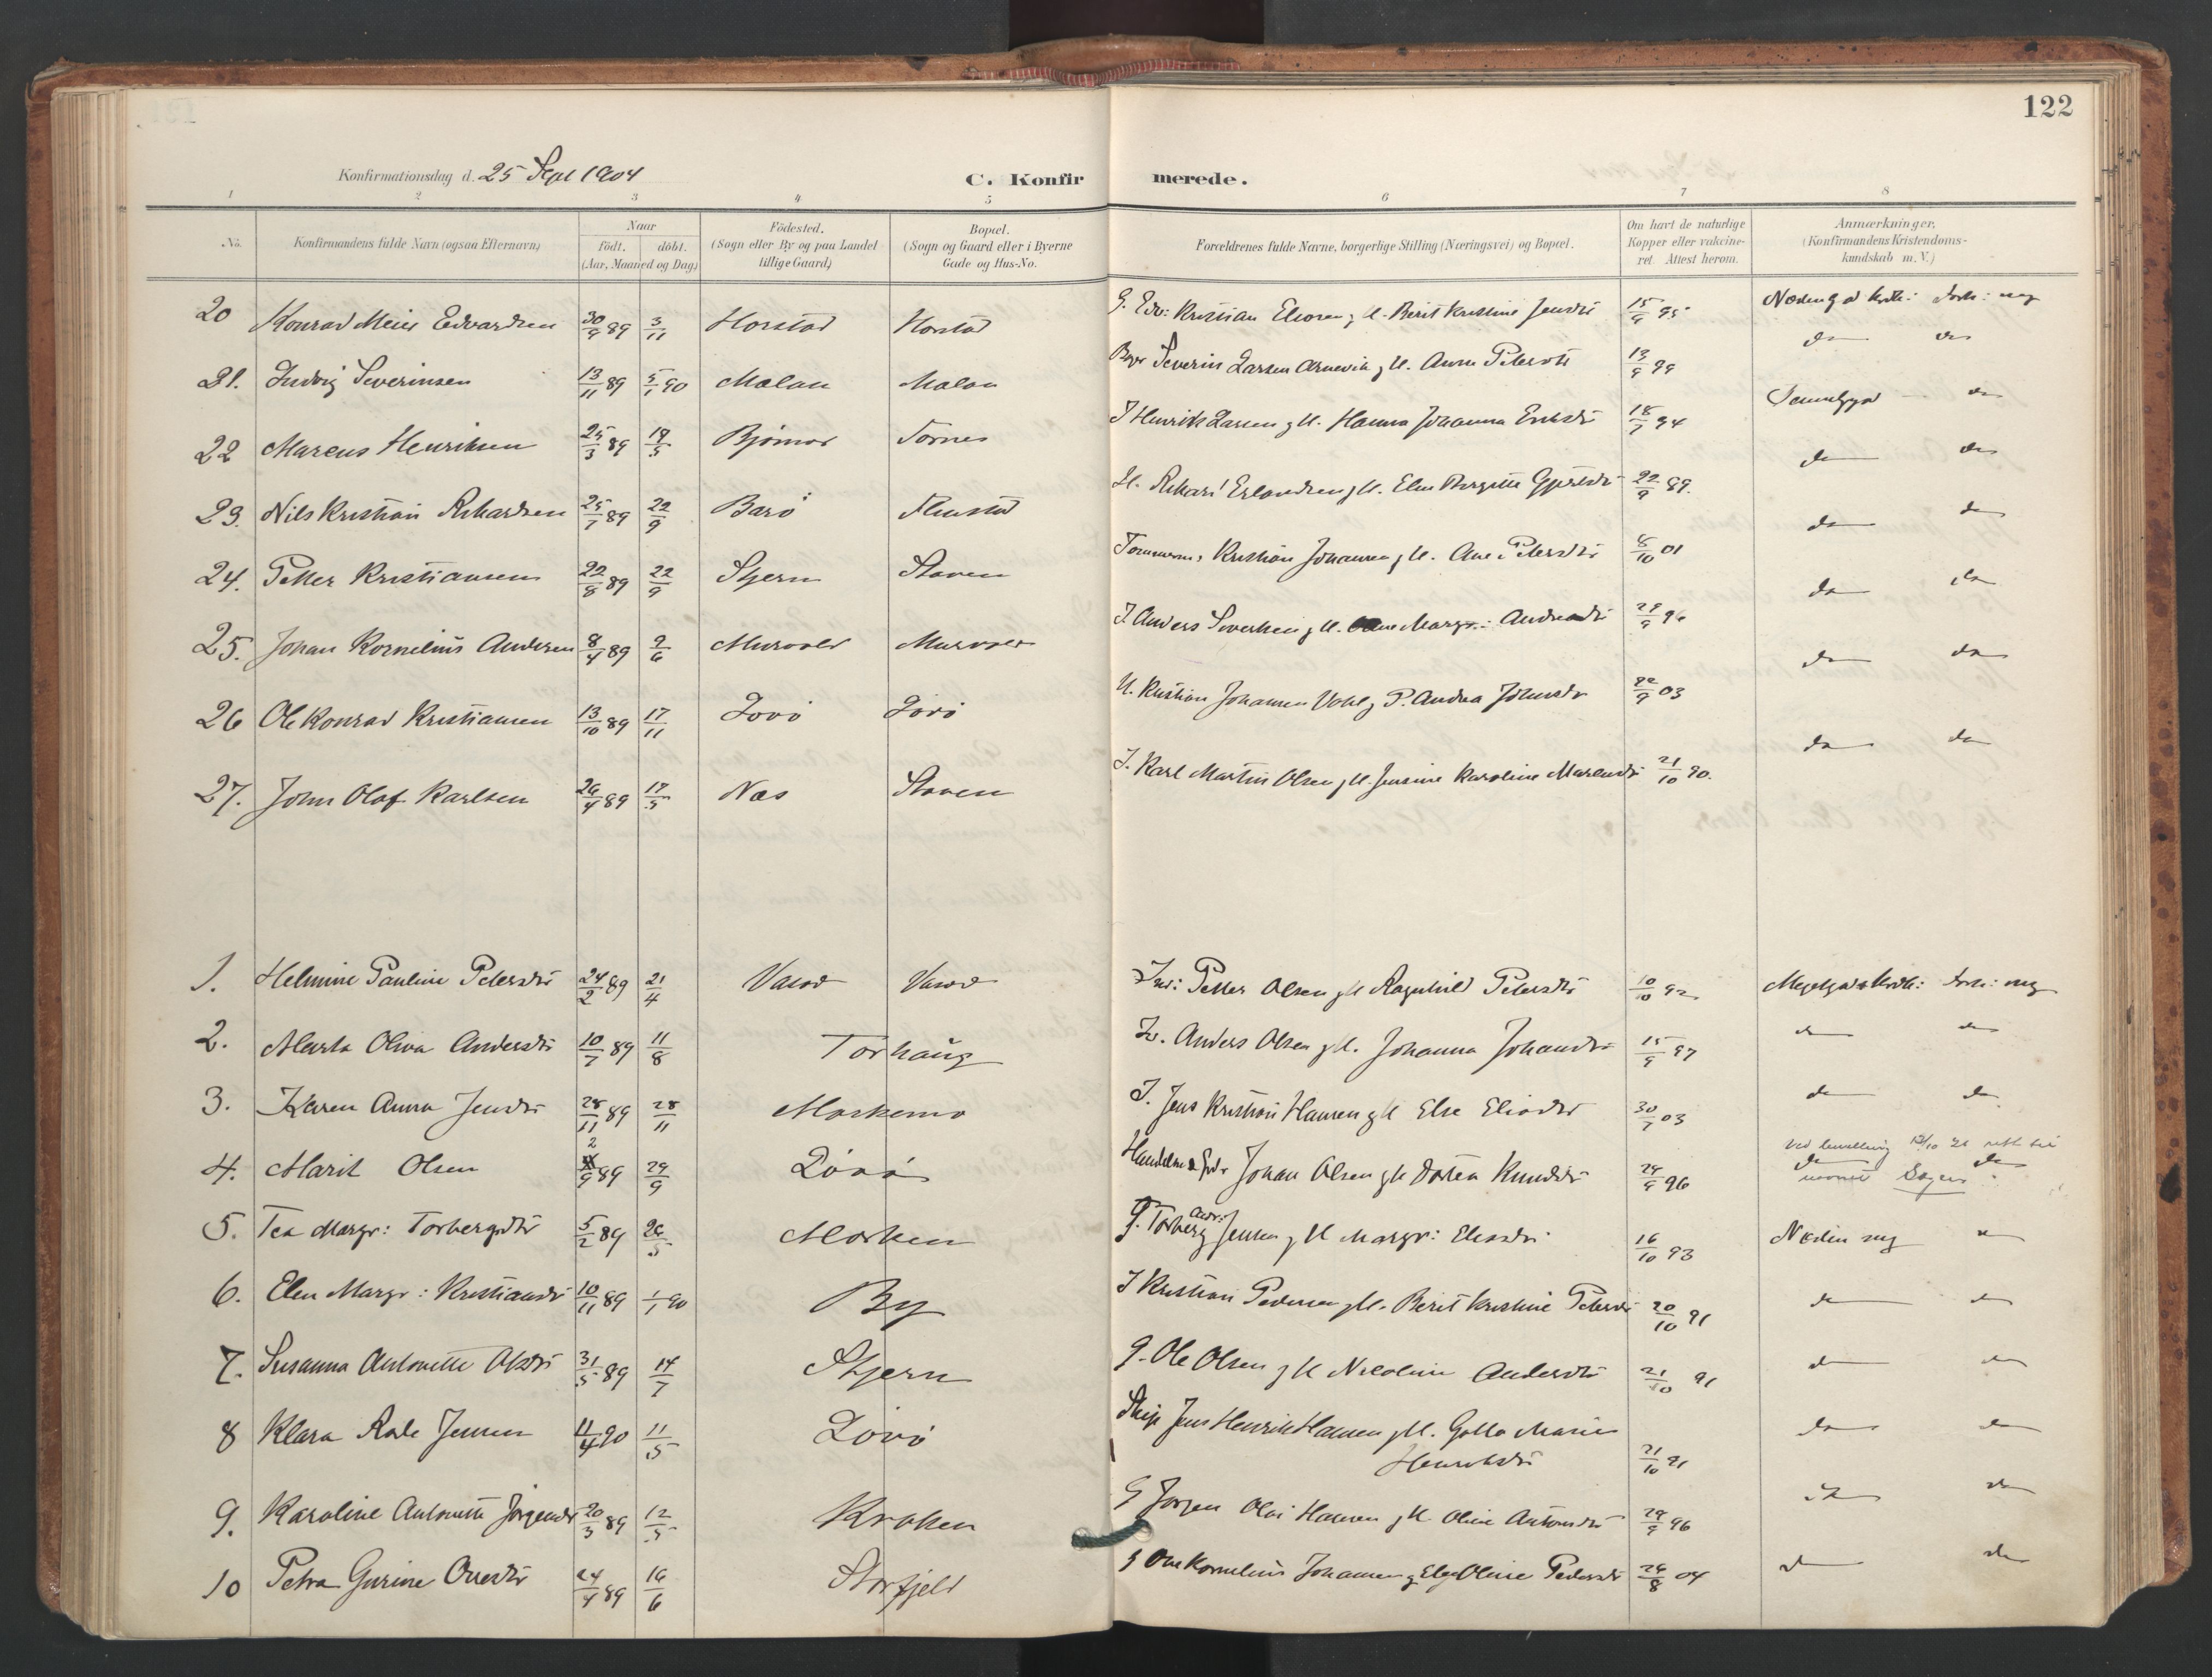 122
Konfirmationsdag d. 25 Sept 1904
C. Konfirmerede.
1 2 3 4 5 6 7 8
No.
Konfirmandens fulde Navn (ogsaa Efternavn)
Naar
födt. döbt.
(Aar, Maaned og Dag)
Födested.
(Sogn eller By og paa Landet
tillige Gaard)
Bopæl.
(Sogn og Gaard eller i Byerne
Gade og Hus-No.
Forældrenes fulde Navne, borgerlige Stilling (Næringsvei) og Bopæl.
Om havt de naturlige
Kopper eller vakcine-
ret. Attest herom.
Anmærkninger,
(Konfirmandens Kristendoms-
kundskab m. V.)
20 Konrad Meier Edvardsen 30/9 89 3/11 Horstad Horstad G. Edv: Kristian Eliasen g H. Berit Kristine Jensdtr 15/9 95
21. Ludvig Severinsen 13/11 89 5/1 90 Mælan Mælan Severin Larsen Arnevik g H. Anne Petersdtr 13/9 99 do do
22 Marcus Henriksen 25/3 89 19/5 Bjørnør Tørnes I Henrik Larsen g H. Hanna Johanna Eriksdtr 18/7 94 do
23. Nils Kristian Rikardsen 25/7 89 22/9 Barø H. Rikard Erlandsen g H. Elen Birgitte 22/9 89. do do
24. Petter Kristiansen 22/8 89 22/9 Stjern Staven Kristian Johansen g H. Ane Petersdtr 8/10 01 do do
25. Johan Kornelius Andersen 8/4 89 9/6 Murvold Murvold I. Anders Marg: Andreasdtr 29/9 96 do do
26 Ole Konrad Kristiansen 13/10 89 17/11 Lövö Lövö U. Kristian Johansen g P. Andrea Johnsdtr 22/9 03 do do
27. John Olaf Karlsen 26/4 89 17/5 Næs Staven I. Karl Martin Olsen g H. Jensine Karoline 21/10 90. do do
1. Helmine Pauline Petersdtr 24/2 89 21/4 Petter Olsen g H Ragnhild Petersdtr 10/10 92
2. Marta Oliva Andersdtr 10/7 89 11/8 Torhaug Anders Olsen g H. Johanna Johansdtr 15/9 97 do do
3. Karen Anna Jensdtr 28/11 89 28/11 Morkemo I. Jens Kristian Hansen g H Else Eliasdtr 30/7 03 do do
4. Marit Olsen 2/9 89 29/9 Lövö Johan Olsen g H Dortea Knudsdtr 29/9 96 Ved bevilling 21 rett til
do do
navnet Sagen
5. Tea Margr: Torbergsdtr 5/2 89 26/5 Morken G. Torberg Andr: Jensen g H Margr: Eliasdtr 16/10 93
6. Elen Margr: Kristiansdtr 10/11 89 1/1 90 By I Kristian Pedersen g H. Berit Kristine Petersdtr 20/10 91 do do
7. Susanna Antonette Olsdtr 31/5 89 14/7 Stjern G. Ole Olsen g H Nikoline Andersdtr 21/10 91 do do
8 Klara Jensen 11/4 90 11/5 Lövö Jens Henrik Hansen g H. Marie
Henriksdtr 21/10 91 do do
9. Karoline Antonette Jørgensdtr 20/3 89 12/5 Kroken G Jørgen Olai Hansen g H. Oline Antonsdtr 29/9 96 do do
10 Petra Gurine Ovesdtr 24/4 89 16/6 Storfjeld G Ove Kornelius Johansen g Oline Pedersdtr 26/8 04 do do